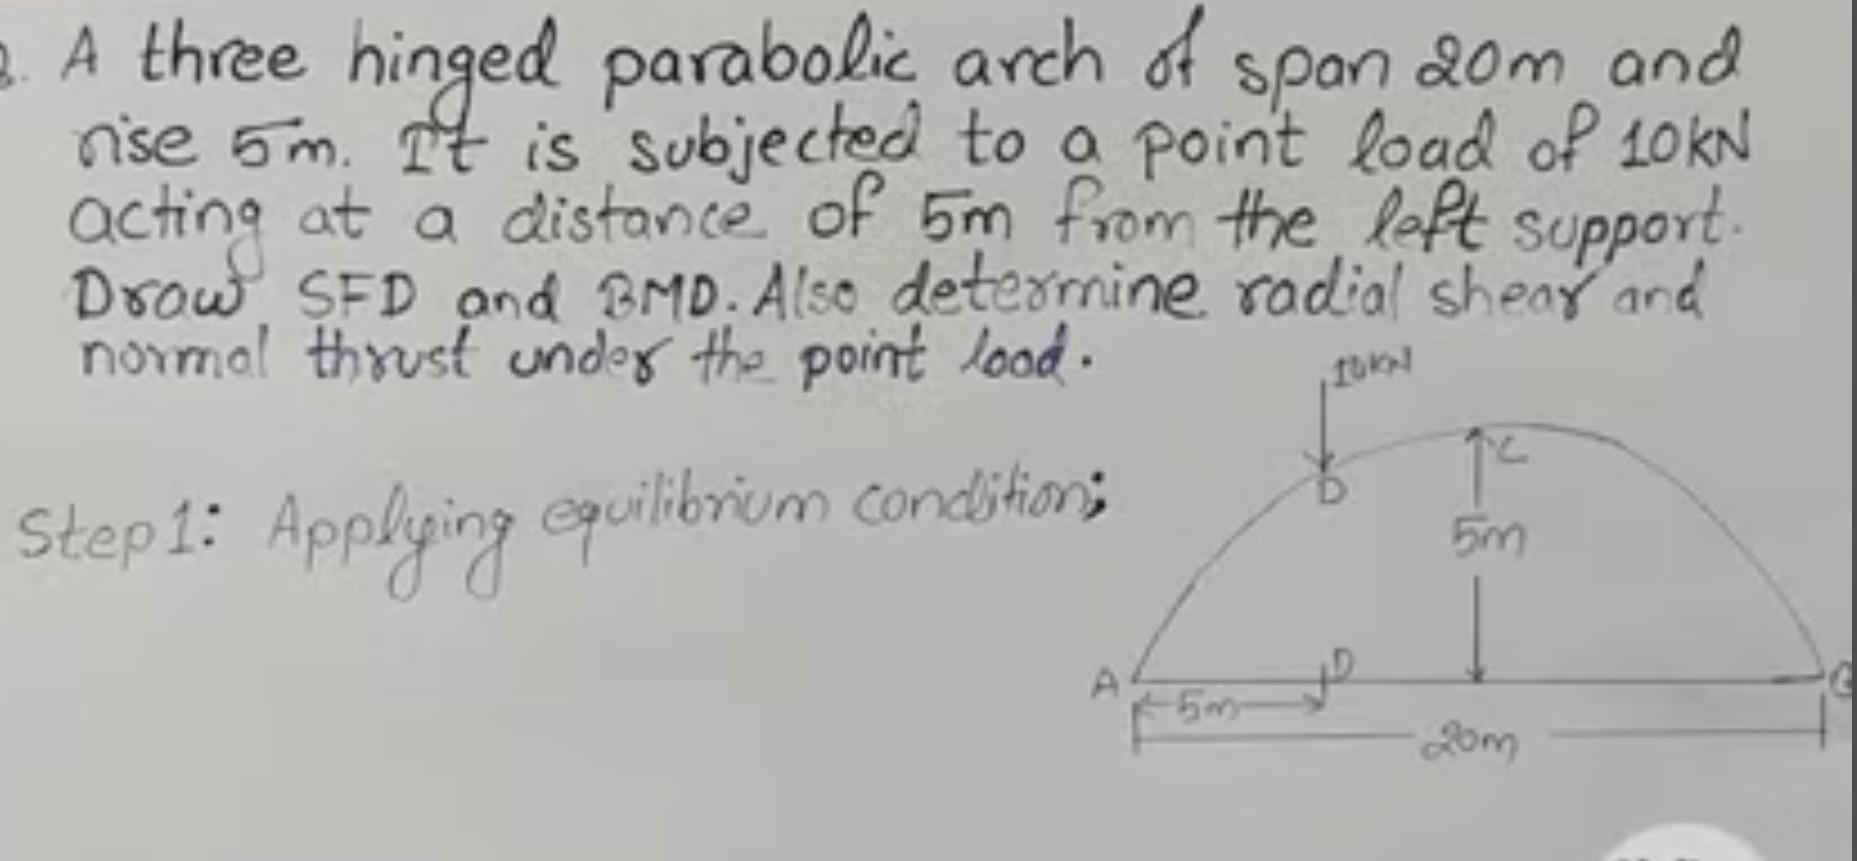 A three hinged parabolic arch of span 20m and
rise 5m. It is subjected to a point load of 10kN
acting at a distance of 5m from the left support.
Draw SFD and BMD. Also determine radial shear and
normal thrust under the point load.
10kN
Step 1: Applying equilibrium condition;
C
D
5m
A
D
5m
20m